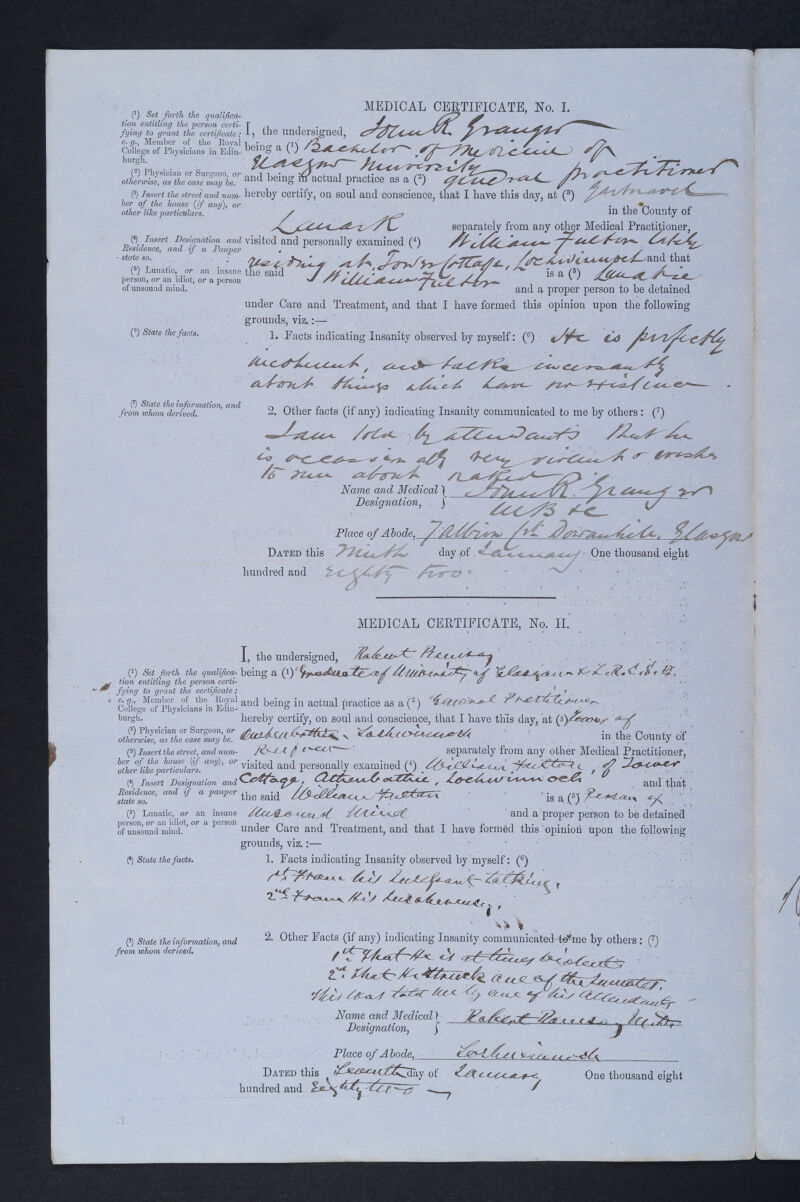 MEDICAL CERTIFICATE, No. I.
(¹) Set forth the qualifica-
tion entitling the person certi-
fying to grant the certificate;
e. g., Member of the Royal
College of Physicians in Edin-
burgh.
(²) Physician or Surgeon, or
otherwise, as the case may be.
(³) Insert the street and num-
ber of the house (if any), or
other like particulars.
(⁴) Insert Designation and
Residence, and if a Pauper
state so.
(⁵) Lunatic, or an insane
person, or an idiot, or a person
of unsound mind.
(⁶) State the facts.
(⁷) State the information, and
from whom derived.
I, the undersigned, John R. Granger
being a (¹) Bachelor of Medicine of
Glasgow University
and being in actual practice as a (²) general practitioner
hereby certify, on soul and conscience, that I have this day, at (³) Gartnavel
in the County of
Lanark separately from any other Medical Practitioner,
visited and personally examined (⁴) William Fulton lately
residing at Tower Cottage, Lochwinnoch and that
the said William Fulton is a (⁵) Lunatic
and a proper person to be detained
under Care and Treatment, and that I have formed this opinion upon the following
grounds, viz.:—
1. Facts indicating Insanity observed by myself: (⁶) He is perfectly
incoherent, and talks incessantly
about things which have no existence.
2. Other facts (if any) indicating Insanity communicated to me by others: (⁷)
I am told by attendants that he
is occasionally very violent & wishes
to run about naked
Name and Medical Designation, John R. Granger
M B & C
Place of Abode, 7 Albion Dowanhill, Glasgow
DATED this Ninth day of January One thousand eight
hundred and eighty two.
MEDICAL CERTIFICATE, No. II.
(¹) Set forth the qualifica-
tion entitling the person certi-
fying to grant the certificate;
e. g., Member of the Royal
College of Physicians in Edin-
burgh.
(²) Physician or Surgeon, or
otherwise, as the case may be.
(³) Insert the street, and num-
ber of the house (if any), or
other like particulars.
(⁴) Insert Designation and
Residence, and if a pauper
state so.
(⁵) Lunatic, or an insane
person, or an idiot, or a person
of unsound mind.
(⁶) State the facts.
(⁷) State the information, and
from whom derived.
I, the undersigned, Robert Ramsay
being a (¹) Graduate of University of Glasgow & L.R.C.S.E.
and being in actual practice as a (²) General Practitioner
hereby certify, on soul and conscience, that I have this day, at (³) Tower of
Lochwinnoch in the County of
Renfrew separately from any other Medical Practitioner,
visited and personally examined (⁴) William Fulton, of Tower
Cottage, Lochwinnoch and that
the said William Fulton is a (⁵) Person of
Unsound Mind and a proper person to be detained
under Care and Treatment, and that I have formed this opinion upon the following
grounds, viz.:—
1. Facts indicating Insanity observed by myself: (⁶)
1st. From his Incessant talking.
2nd. From His Incoherency.
2. Other Facts (if any) indicating Insanity communicated to me by others: (⁷)
1st. That He is at times violent.
2nd. That He struck one of the Inmates.
This was told me by one of his Attendants
Name and Medical Designation, Robert Ramsay M.D.
Place of Abode, Lochwinnoch
DATED this Seventh day of January One thousand eight
hundred and Eighty two